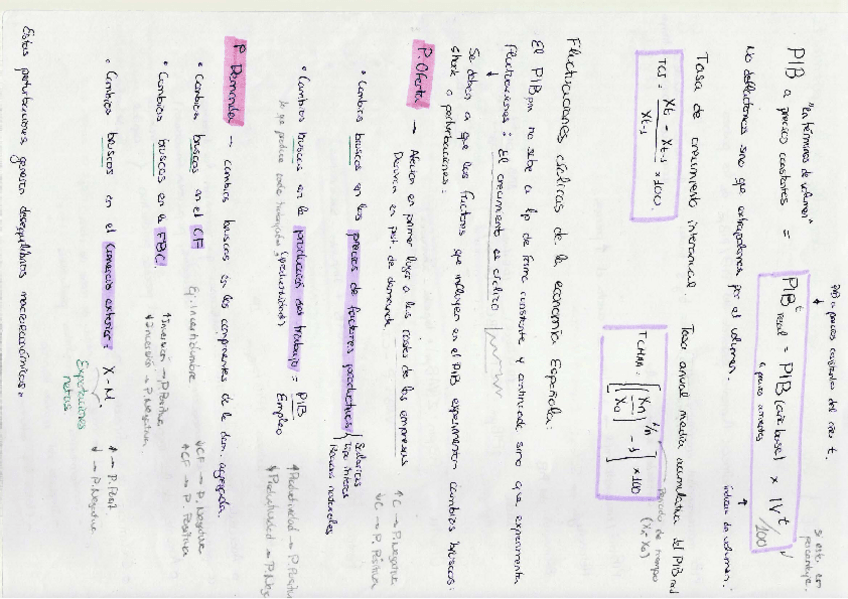 PIB a precios constantes del año t.
"En términos de volumen"
PIB a precios constantes = PIB^t real = PIB (año base) × IV^t /100
si está en porcentaje.
a precios corrientes
índice de volumen.
No deflactamos sino que extrapolamos por el volumen.
Tasa de crecimiento interanual. Tasa anual media acumulativa del PIB real
TCI = Xt - Xt-1 / Xt-1 × 100.
TCMAA = [(Xn / X0)^1/n - 1] × 100
Periodo de tiempo
(Xn - X0)
Fluctuaciones cíclicas de la economía Española.
El PIB pm no sube a lp de forma constante y continuada sino que experimenta
fluctuaciones: El crecimiento es cíclico
Se deben a que los factores que influyen en el PIB experimentan cambios bruscos:
shock o perturbaciones:
P. Oferta → Afectan en primer lugar a los costes de las empresas
Derivan en pert. de demanda
↑C → P. Negativa
↓C → P. Positiva
• Cambios bruscos en los precios de factores productivos
Salarios
Tipo interés
Recursos naturales
• Cambios bruscos en la producción del trabajo = PIB / Empleo
lo que produce cada trabajador (productividad)
↑Productividad → P. Positiva
↓Productividad → P. Nega
P. Demanda → cambios bruscos en los componentes de la dem. agregada.
• Cambios bruscos en el CF
Ej: Incertidumbre
↓CF → P. Negativa
↑CF → P. Positiva
• Cambios bruscos en la FBC.
↑Inversión → P. Positiva
↓Inversión → P. Negativa.
• Cambios bruscos en el comercio exterior: X-M
Exportaciones netas
↑ → P. Posit
↓ → P. Negativa
Estas perturbaciones generan desequilibrios macroeconómicos.